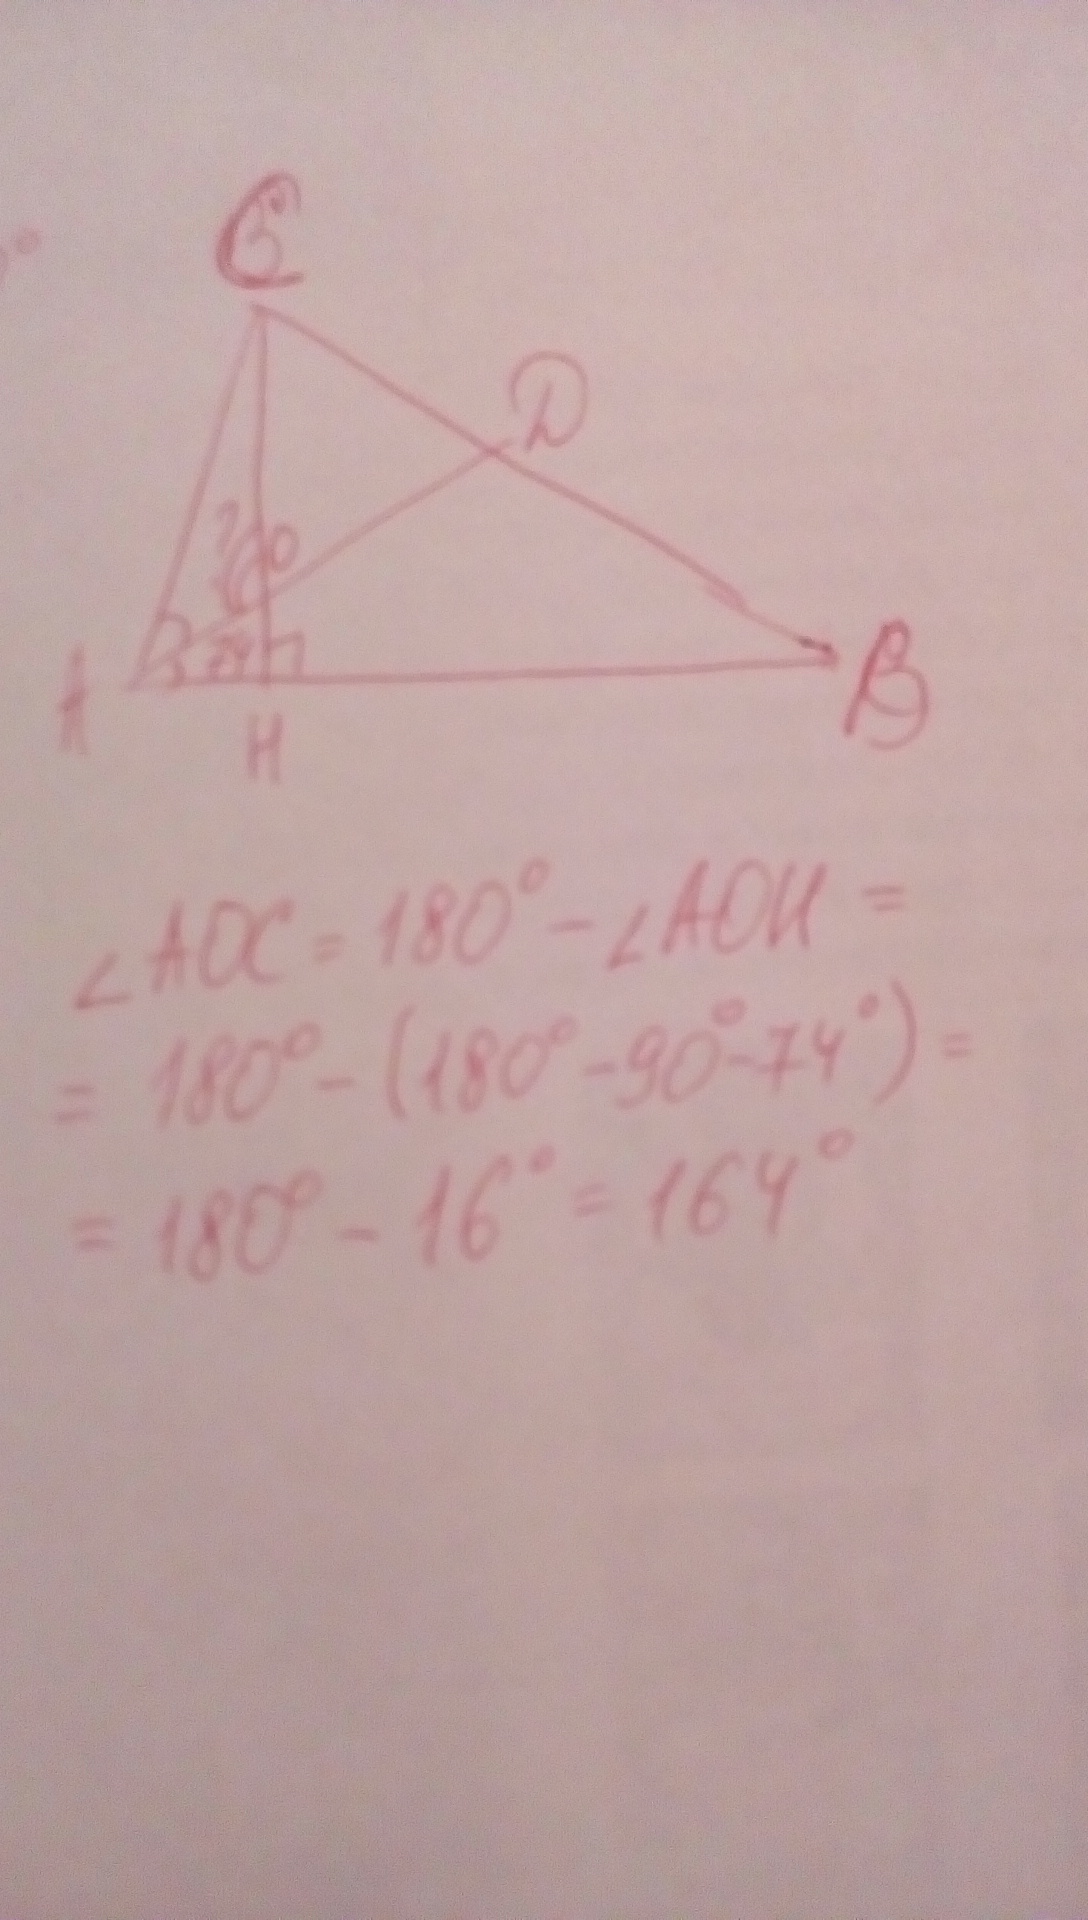 C
D
O
74
A
B
H
∠AOC = 180° - ∠AOH =
= 180° - (180° - 90° - 74°) =
= 180° - 16° = 164°